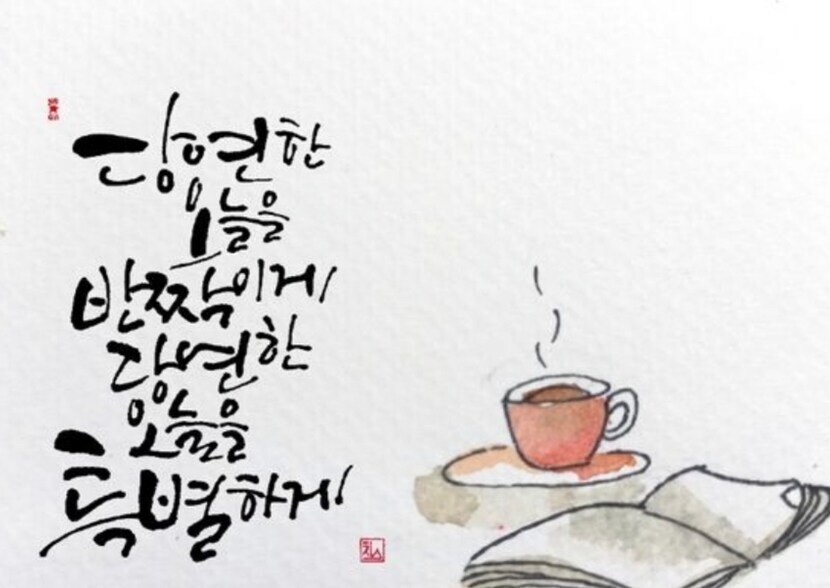 당연한
오늘을
반짝이게
당연한
오늘을
특별하게